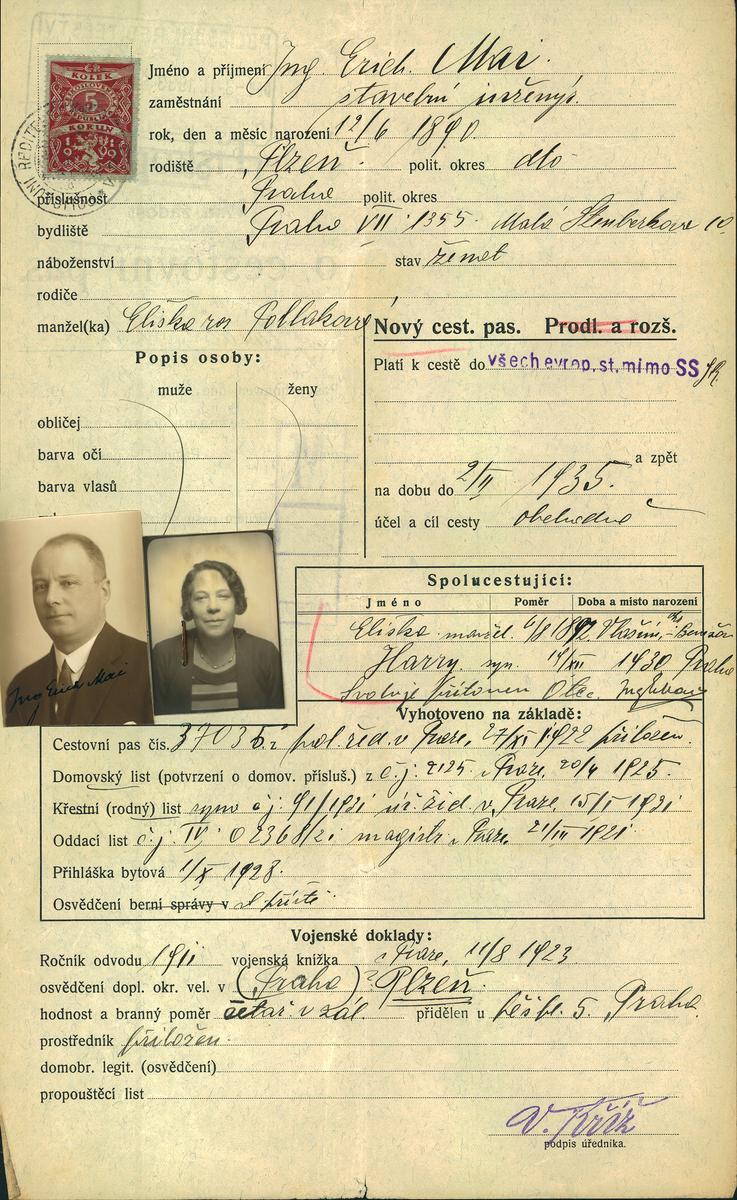 ČR
KOLEK
5
KORUN
1919
Jméno a příjmení Ing. Erich Mai.
zaměstnání stavební inženýr.
rok, den a měsíc narození 12/6 1890
rodiště Plzeň polit. okres dto
příslušnost Praha polit. okres
bydliště Praha VII 1355. Malá 10
náboženství stav ženat
rodiče
manžel(ka) Eliška roz Pollaková
Nový cest. pas. Prodl. a rozš.
Popis osoby:
muže ženy
obličej
barva očí
barva vlasů
Platí k cestě do všech evrop. st. mimo SS
a zpět
na dobu do 2/II 1935.
účel a cíl cesty obchodně
Ing Erich Mai
Spolucestující:
Jméno Poměr Doba a místo narození
Eliška manžel. 6/8 1892 Vlašim,
Harry syn 14/XII 1930 Praha
Svoluje přítomen Otec.
Vyhotoveno na základě:
Cestovní pas čís. pol. řed. v Praze, 27/XI 1922 přiložen.
Domovský list (potvrzení o domov. přísluš.) z č.j. 2125 Praze, 20/4 1925.
Křestní (rodný) list syna čj. 91/1931 v Praze 15/I 1931
Oddací list č.j. IV magistr. Praze, 21/III 1921
Přihláška bytová 1/X 1928.
Osvědčení berní správy v
Vojenské doklady:
Ročník odvodu 1911 vojenská knížka Praze, 11/8 1923
osvědčení dopl. okr. vel. v (Praha)? Plzeň.
hodnost a branný poměr četař v zál přidělen u pěš. pl. 5. Praha.
prostředník přiložen.
domobr. legit. (osvědčení)
propouštěcí list
V. Kříž
podpis úředníka.